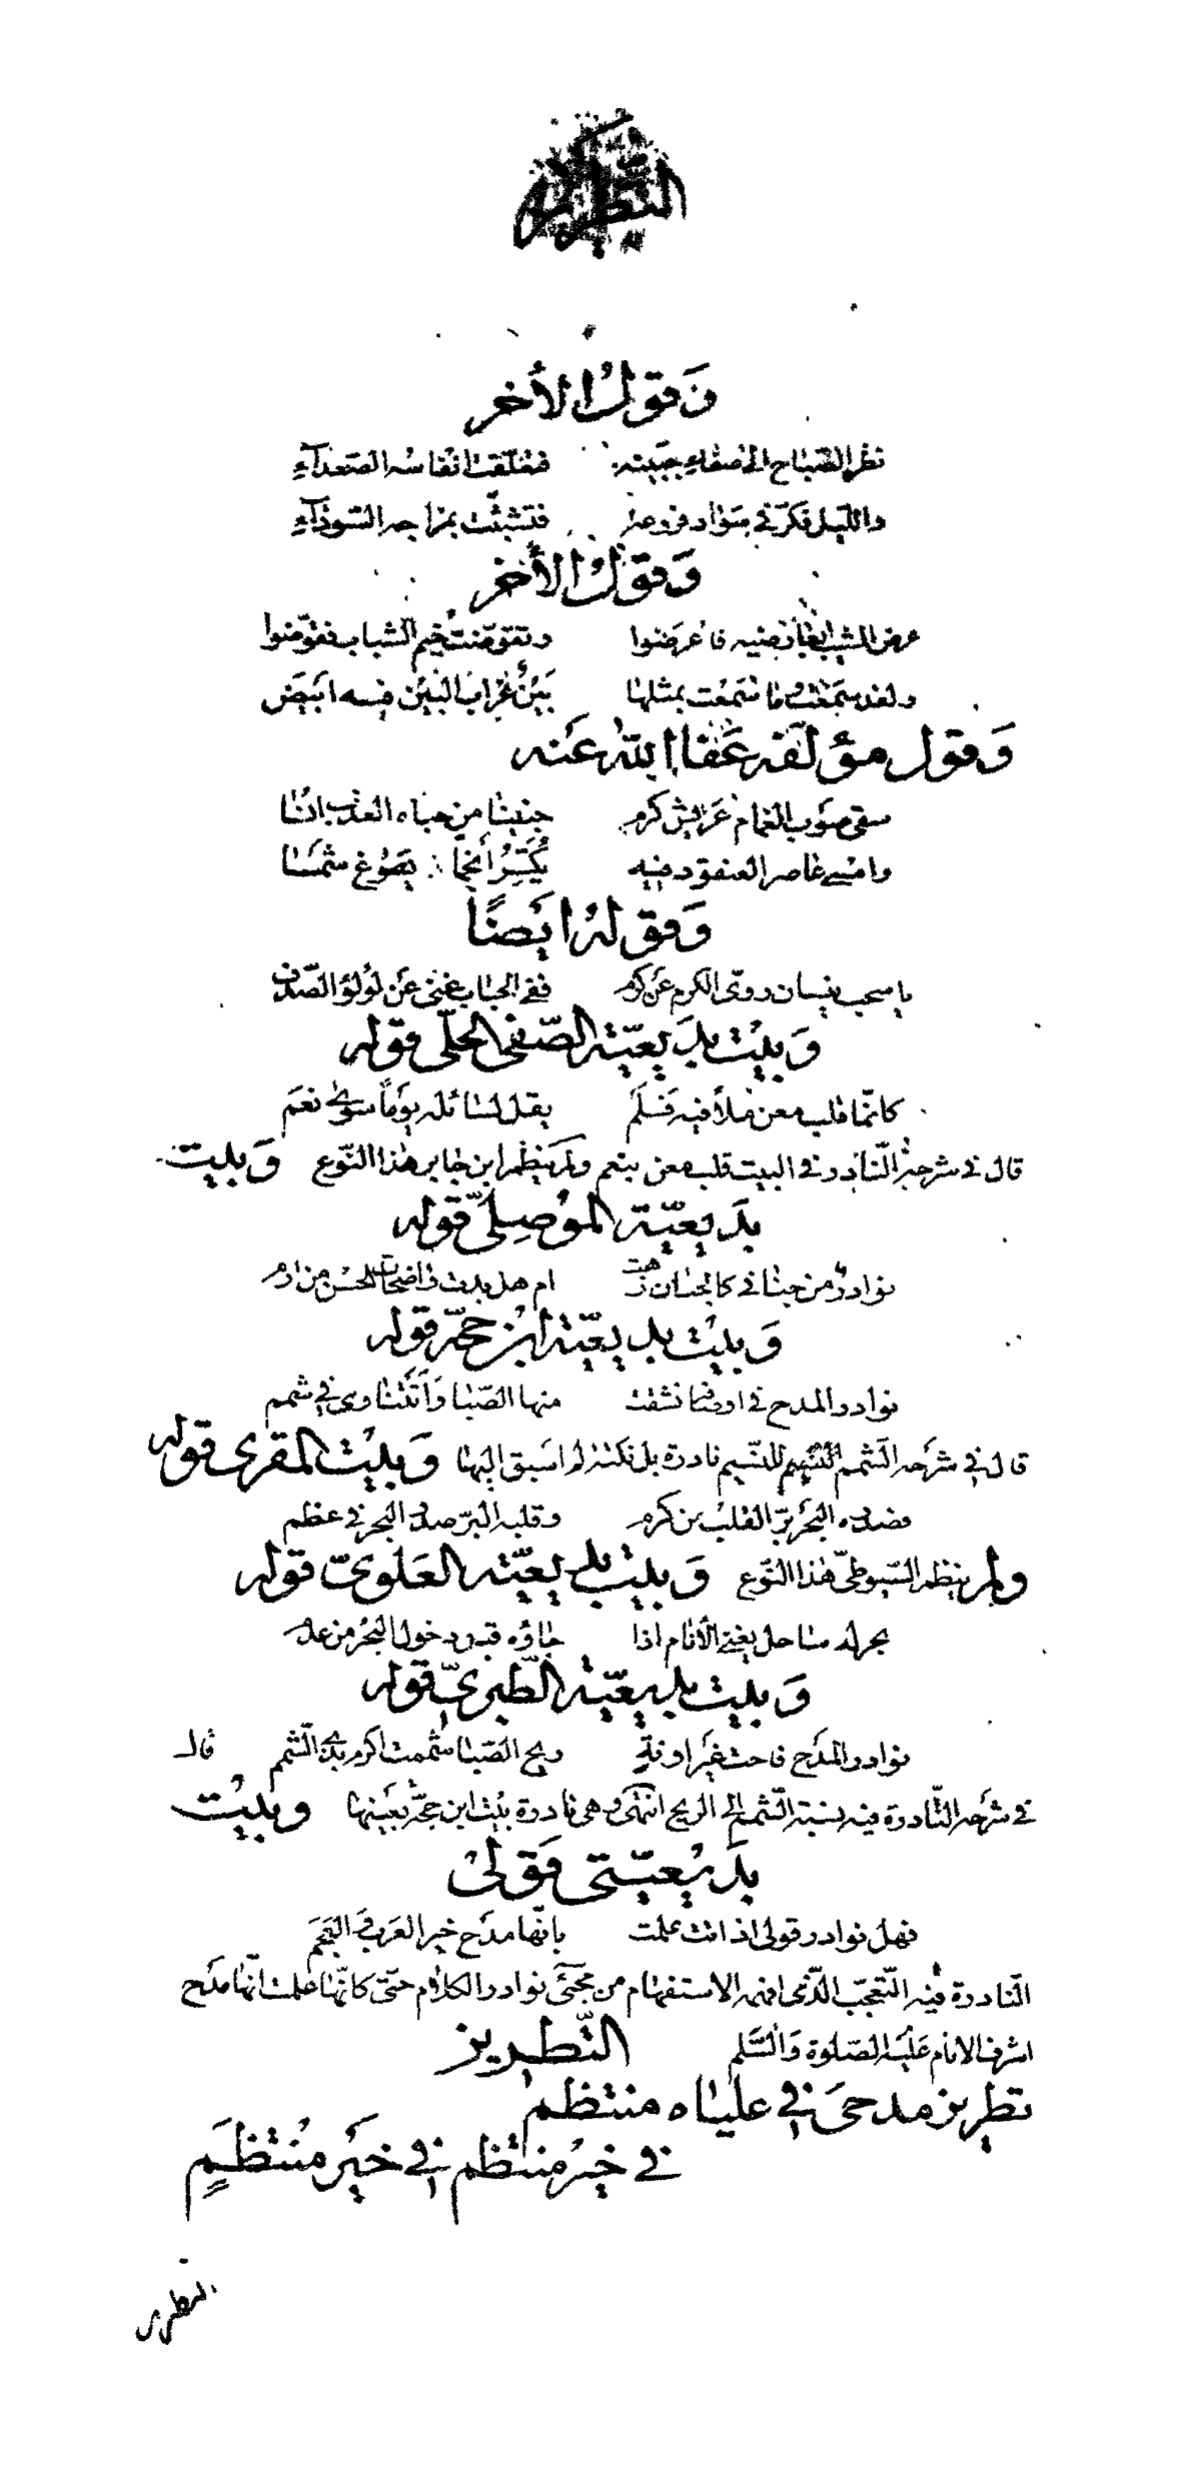 التطريز
وَقول الأخر
نظر الصّباح الى صفاءِ جبينه فتعلّقت انفاسه الصّعدآءِ
واللّيل فكّر فى سَواد فروعه فتشبّثت بمزاجه السّودآءِ
وَقول الأخر
عرض المشيب بعارضيه فاعرضوا وتقوّضت خيم الشباب فقوّضوا
ولقد سَمعت وما سَمعت بمثلها بَينٌ غرابُ البَين فيه ابيَض
وَقول مؤلّفه عَفا الله عَنه
سقى صَوب الغمام عَريش كرم جنينا من جناه العذب انسَا
وامسى عاصر العنقود فيه يُكَسِّرُ أنجمًا يَصُوغ شمسَا
وَقوله ايَضًا
يا سحب نيسان روّى الكرم عن كرم ففى الحباب غنى عَن لؤلؤ الصّدف
وَبيْت بدَيعيّة الصّفى الحلّى قوله
كانّما قلب معن ملأ فيه فَلَم يقل لسَائله يوَماً سوى نعَم
قال فى شرحه النّادر فى البيت قلب معن بنعم ولم ينظم ابن جابر هذا النّوع وَبيت
بدَيعيّة الموُصِلىّ قوله
نوادر من جنانى كالجنان زهت ام هل بدت واضحات الحسن من ارم
وَبيْت بديعيّة ابن حجّة قوله
نوادر المدح فى اوصافه نشقت منها الصّبا وَأتَتنا وهى فى شمم
قال فى شرَحه الشّمم للنّسيم نادرة بل نكتة لم اسَبق اليها وَبيْت المقرى قوله
فضله البحَر برّ القلب من كرم وقلبه البرّ صار البحر فى عظم
ولم ينظم السّيوطىّ هذا النّوع وَبيْت بديعيّة العَلوىّ قوله
بحر له سَاحل يغنى الأنام اذا جاؤه قبل دخول البحر من عدم
وَبيت بديعيّة الطّبرىّ قوله
نوادر المدَح فاحت غيَر اونةٍ ريح الصّبا شُمّمت اكرم بذى الشّمم قال
فى شرَحه النّادرة فيه نسبة الشّمم الى الريح انتهى وهى نادرة بَيت ابن حجّة بعَينها وبَيْت
بدَيعيّتى قَولىْ
فهل نوادر قولى اذ اتت علمت بانّها مدَح خير العَرب وَالعَجَم
النّادرة فيه التّعجّب الّذى افهمه الاستفهام من مجَىء نوادر الكلام حتّى كانّها علمت انّها مدَح
اشرف الانام عَليْه الصّلوة وَالسَّلم التّطريز
تطريز مدحىَ فى علياه منتظم
فى خيرُ منتظم فى خيَر مُنتظَمٍ
التطريز